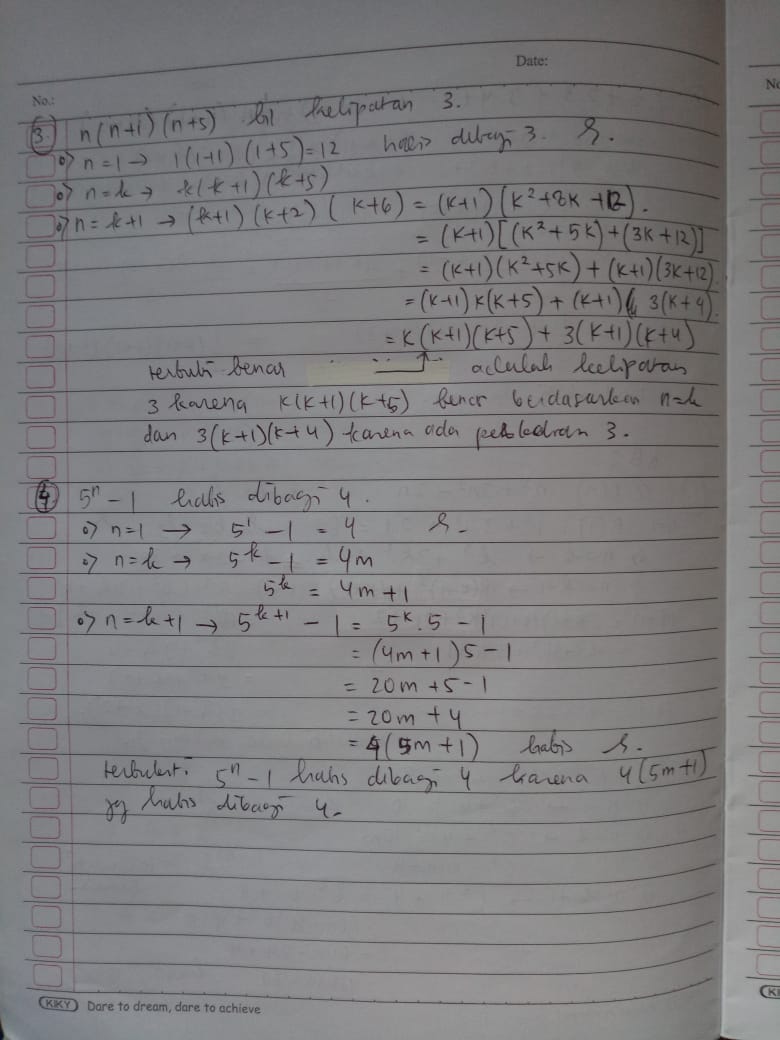 Date:
No.:
No
3. n(n+1)(n+5) bil kelipatan 3.
•> n=1 → 1(1+1)(1+5)=12 habis dibagi 3.
•> n=k → k(k+1)(k+5)
•> n=k+1 → (k+1)(k+2)(k+6) = (k+1)(k²+8k+12).
= (k+1)[(k²+5k)+(3k+12)]
= (k+1)(k²+5k)+(k+1)(3k+12)
= (k+1)k(k+5)+(k+1) 3(k+4)
= k(k+1)(k+5)+3(k+1)(k+4)
terbukti benar adalah kelipatan
3 karena k(k+1)(k+5) benar berdasarkan n=k
dan 3(k+1)(k+4) karena ada 3.
4. 5ⁿ-1 habis dibagi 4.
•> n=1 → 5¹-1 = 4
•> n=k → 5ᵏ-1 = 4m
5ᵏ = 4m+1
•> n=k+1 → 5ᵏ⁺¹-1 = 5ᵏ.5-1
= (4m+1)5-1
= 20m+5-1
= 20m+4
= 4(5m+1) habis
terbukti. 5ⁿ-1 habis dibagi 4 karena 4(5m+1)
jg habis dibagi 4.
KIKY Dare to dream, dare to achieve
KI